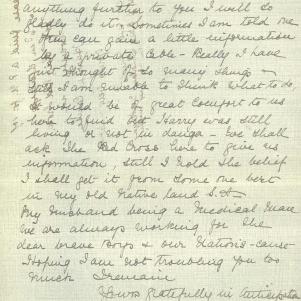 anything further to you I will so
gladly do it - Sometimes I am told one
can gain a little information
by a private cable - Really I have
just thought of so many things -
I am unable to think what to do
it would be of great comfort to us
here to find out Harry was still
living or not in danger - We shall
ask the Red Cross here to give us
information, still I hold the belief
I shall get it from some one best
in my old native land
My Husband being a Medical Man
we are always working for the
dear brave Boys & our Nations- cause-
Hoping I am not troubling you too
much I remain
Yours gratefully in anticipation